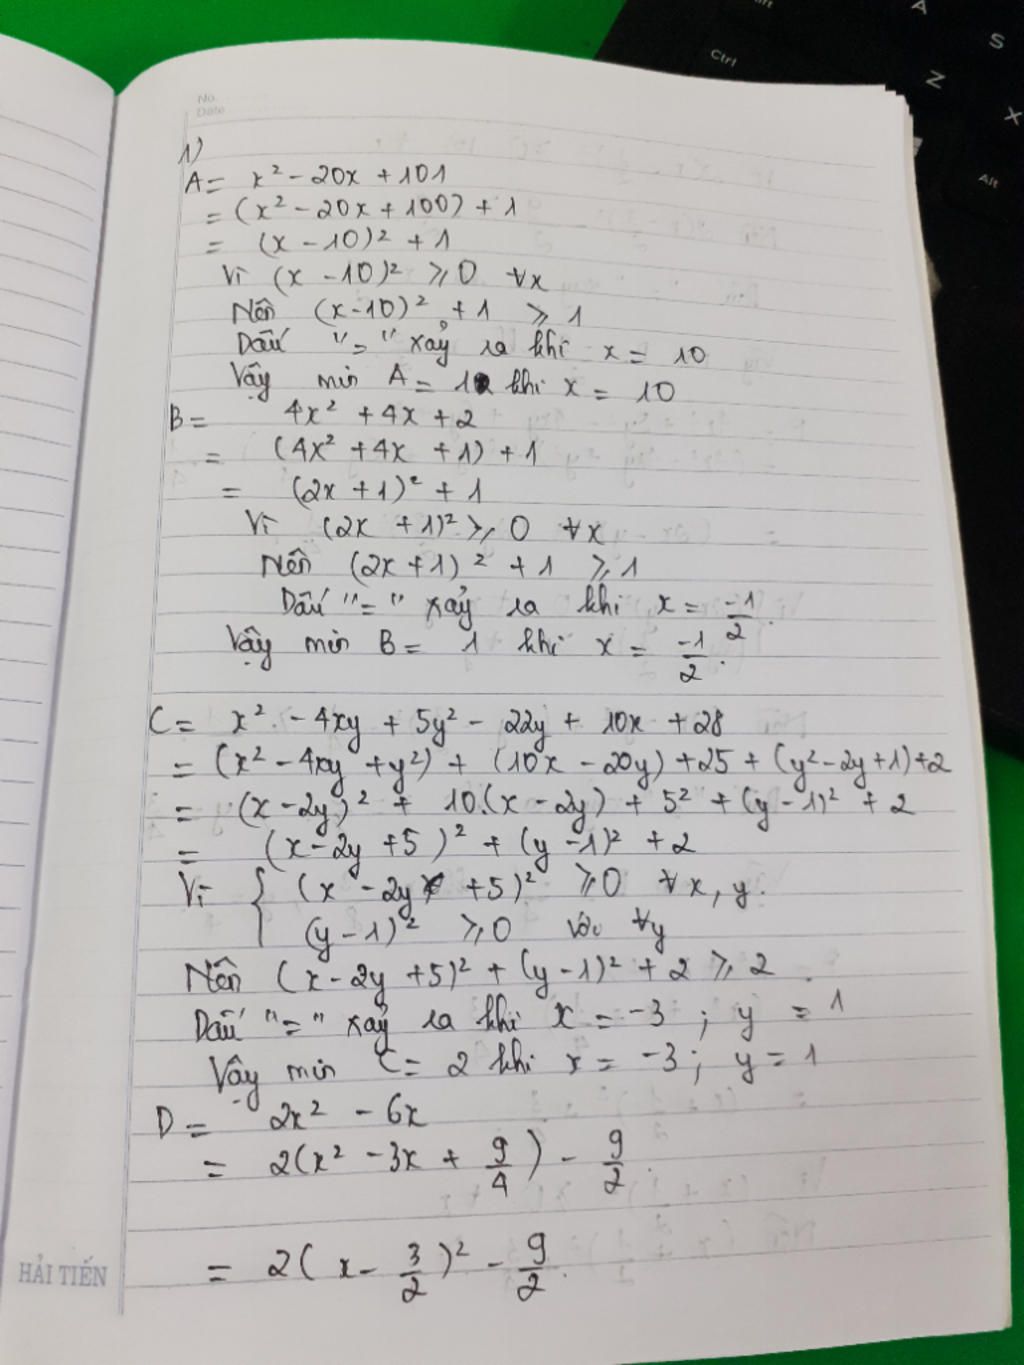 No.
Date
1)
A = x² - 20x + 101
= (x² - 20x + 100) + 1
= (x - 10)² + 1
Vì (x - 10)² ⩾ 0 ∀x
Nên (x-10)² + 1 ⩾ 1
Dấu "=" xảy ra khi x = 10
Vậy min A = 1 khi x = 10
B = 4x² + 4x + 2
= (4x² + 4x + 1) + 1
= (2x + 1)² + 1
Vì (2x + 1)² ⩾ 0 ∀x
Nên (2x + 1)² + 1 ⩾ 1
Dấu "=" xảy ra khi x = -1/2.
Vậy min B = 1 khi x = -1/2.
C = x² - 4xy + 5y² - 22y + 10x + 28
= (x² - 4xy + y²) + (10x - 20y) + 25 + (y² - 2y + 1) + 2
= (x - 2y)² + 10.(x - 2y) + 5² + (y - 1)² + 2
= (x - 2y + 5)² + (y - 1)² + 2
Vì { (x - 2y + 5)² ⩾ 0 ∀x, y.
(y - 1)² ⩾ 0 với ∀y
Nên (x - 2y + 5)² + (y - 1)² + 2 ⩾ 2.
Dấu "=" xảy ra khi x = -3 ; y = 1
Vậy min C = 2 khi x = -3 ; y = 1
D = 2x² - 6x
= 2(x² - 3x + 9/4) - 9/2.
= 2(x - 3/2)² - 9/2.
HẢI TIẾN
Ctrl
A
S
Z
X
Alt